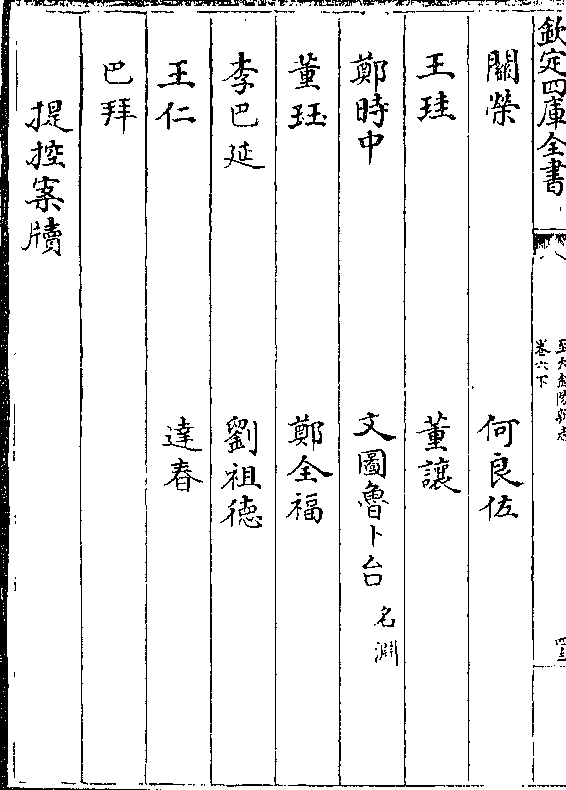 欽定四庫全書
卷六下
關榮 何良佐
王珪 董讓
鄭時中 文圖魯卜台 名淵
董珏 鄭全福
李巴延 劉祖德
王仁 達春
巴拜
提控案牘